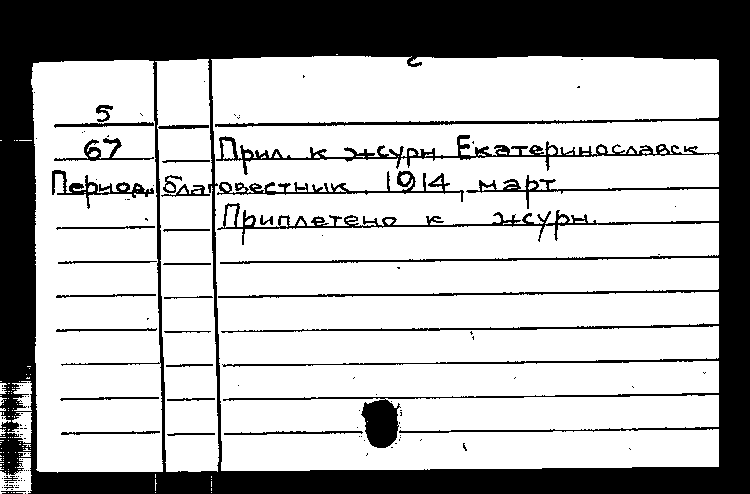 5
67 Прил. к журн. Екатеринославск
Период. Благовестник. 1914, март.
Приплетено к журн.